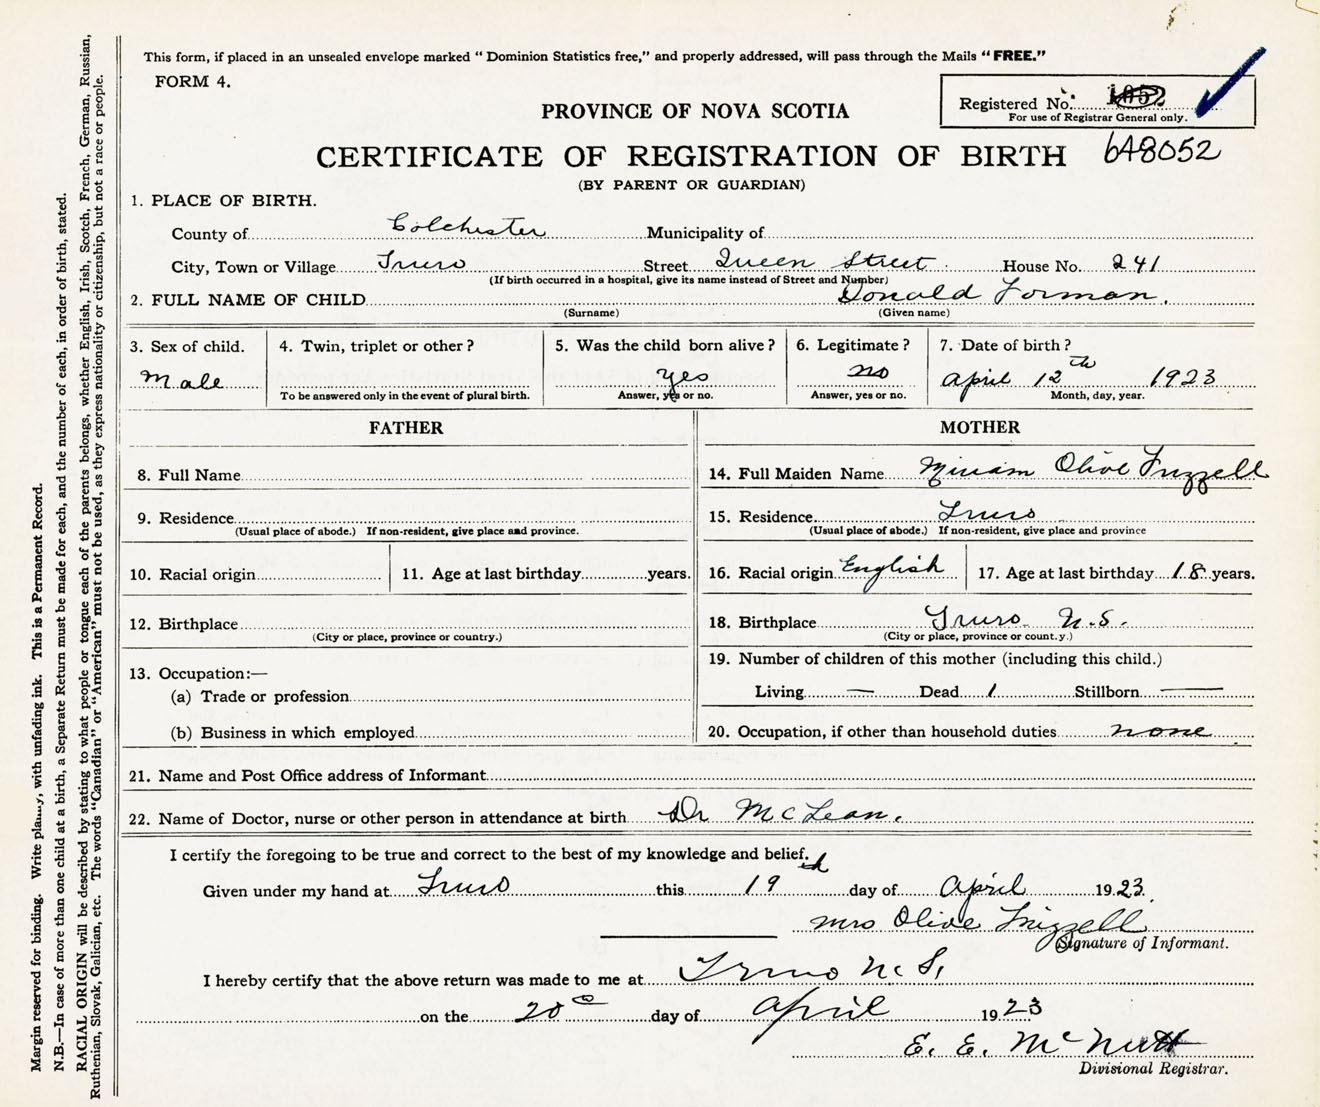 This form, if placed in an unsealed envelope marked "Dominion Statistics free," and properly addressed, will pass through the Mails "FREE."
FORM 4.
Registered No. 1052
For use of Registrar General only.
PROVINCE OF NOVA SCOTIA
CERTIFICATE OF REGISTRATION OF BIRTH
648052
(BY PARENT OR GUARDIAN)
1. PLACE OF BIRTH.
County of Colchester Municipality of
City, Town or Village Truro Street Queen Street House No. 241
(If birth occurred in a hospital, give its name instead of Street and Number)
2. FULL NAME OF CHILD Donald Forman.
(Surname) (Given name)
3. Sex of child. 4. Twin, triplet or other? 5. Was the child born alive? 6. Legitimate? 7. Date of birth?
Male yes no April 12th 1923
To be answered only in the event of plural birth. Answer, yes or no. Answer, yes or no. Month, day, year.
FATHER MOTHER
8. Full Name 14. Full Maiden Name Miriam Olive Frizzell
9. Residence 15. Residence Truro
(Usual place of abode.) If non-resident, give place and province. (Usual place of abode.) If non-resident, give place and province
10. Racial origin 11. Age at last birthday years. 16. Racial origin English 17. Age at last birthday 18 years.
12. Birthplace 18. Birthplace Truro N.S.
(City or place, province or country.) (City or place, province or count.y.)
19. Number of children of this mother (including this child.)
13. Occupation:—
(a) Trade or profession Living — Dead 1 Stillborn —
(b) Business in which employed 20. Occupation, if other than household duties none
21. Name and Post Office address of Informant
22. Name of Doctor, nurse or other person in attendance at birth Dr McLean.
I certify the foregoing to be true and correct to the best of my knowledge and belief.
Given under my hand at Truro this 19 day of April 1923.
Mrs Olive Frizzell
Signature of Informant.
I hereby certify that the above return was made to me at Truro N.S.
on the 20 day of April 1923
E. E. McNutt
Divisional Registrar.
Margin reserved for binding. Write plainly, with unfading ink. This is a Permanent Record.
N.B.—In case of more than one child at a birth, a Separate Return must be made for each, and the number of each, in order of birth, stated.
RACIAL ORIGIN will be described by stating to what people or tongue each of the parents belongs, whether English, Irish, Scotch, French, German, Russian,
Ruthenian, Slovak, Galician, etc. The words "Canadian" or "American" must not be used, as they express nationality or citizenship, but not a race or people.